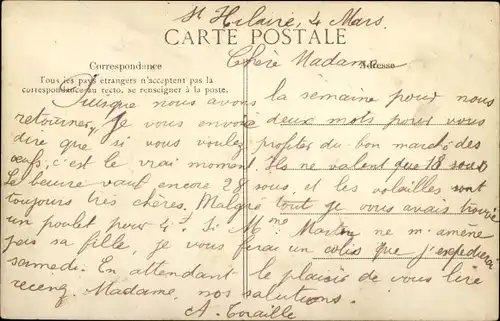 St Hilaire, 4 Mars.
CARTE POSTALE
Correspondance
Adresse
Tous les pays étrangers n'acceptent pas la
correspondance au recto, se renseigner à la poste.
Chère Madame
Puisque nous avons la semaine pour nous
retourner, je vous envoie deux mots pour vous
dire que si vous voulez profiter du bon marché des
oeufs, c'est le vrai moment. Ils ne valent que 18 sous
Le beurre vaut encore 28 sous, et les volailles sont
toujours très chères. Malgré tout je vous avais trouvé
un poulet pour 4f. Si Mme Martin ne m'amène
pas sa fille, je vous ferai un colis que j'expédierai
samedi. En attendant le plaisir de vous lire
recevez Madame, nos salutions.